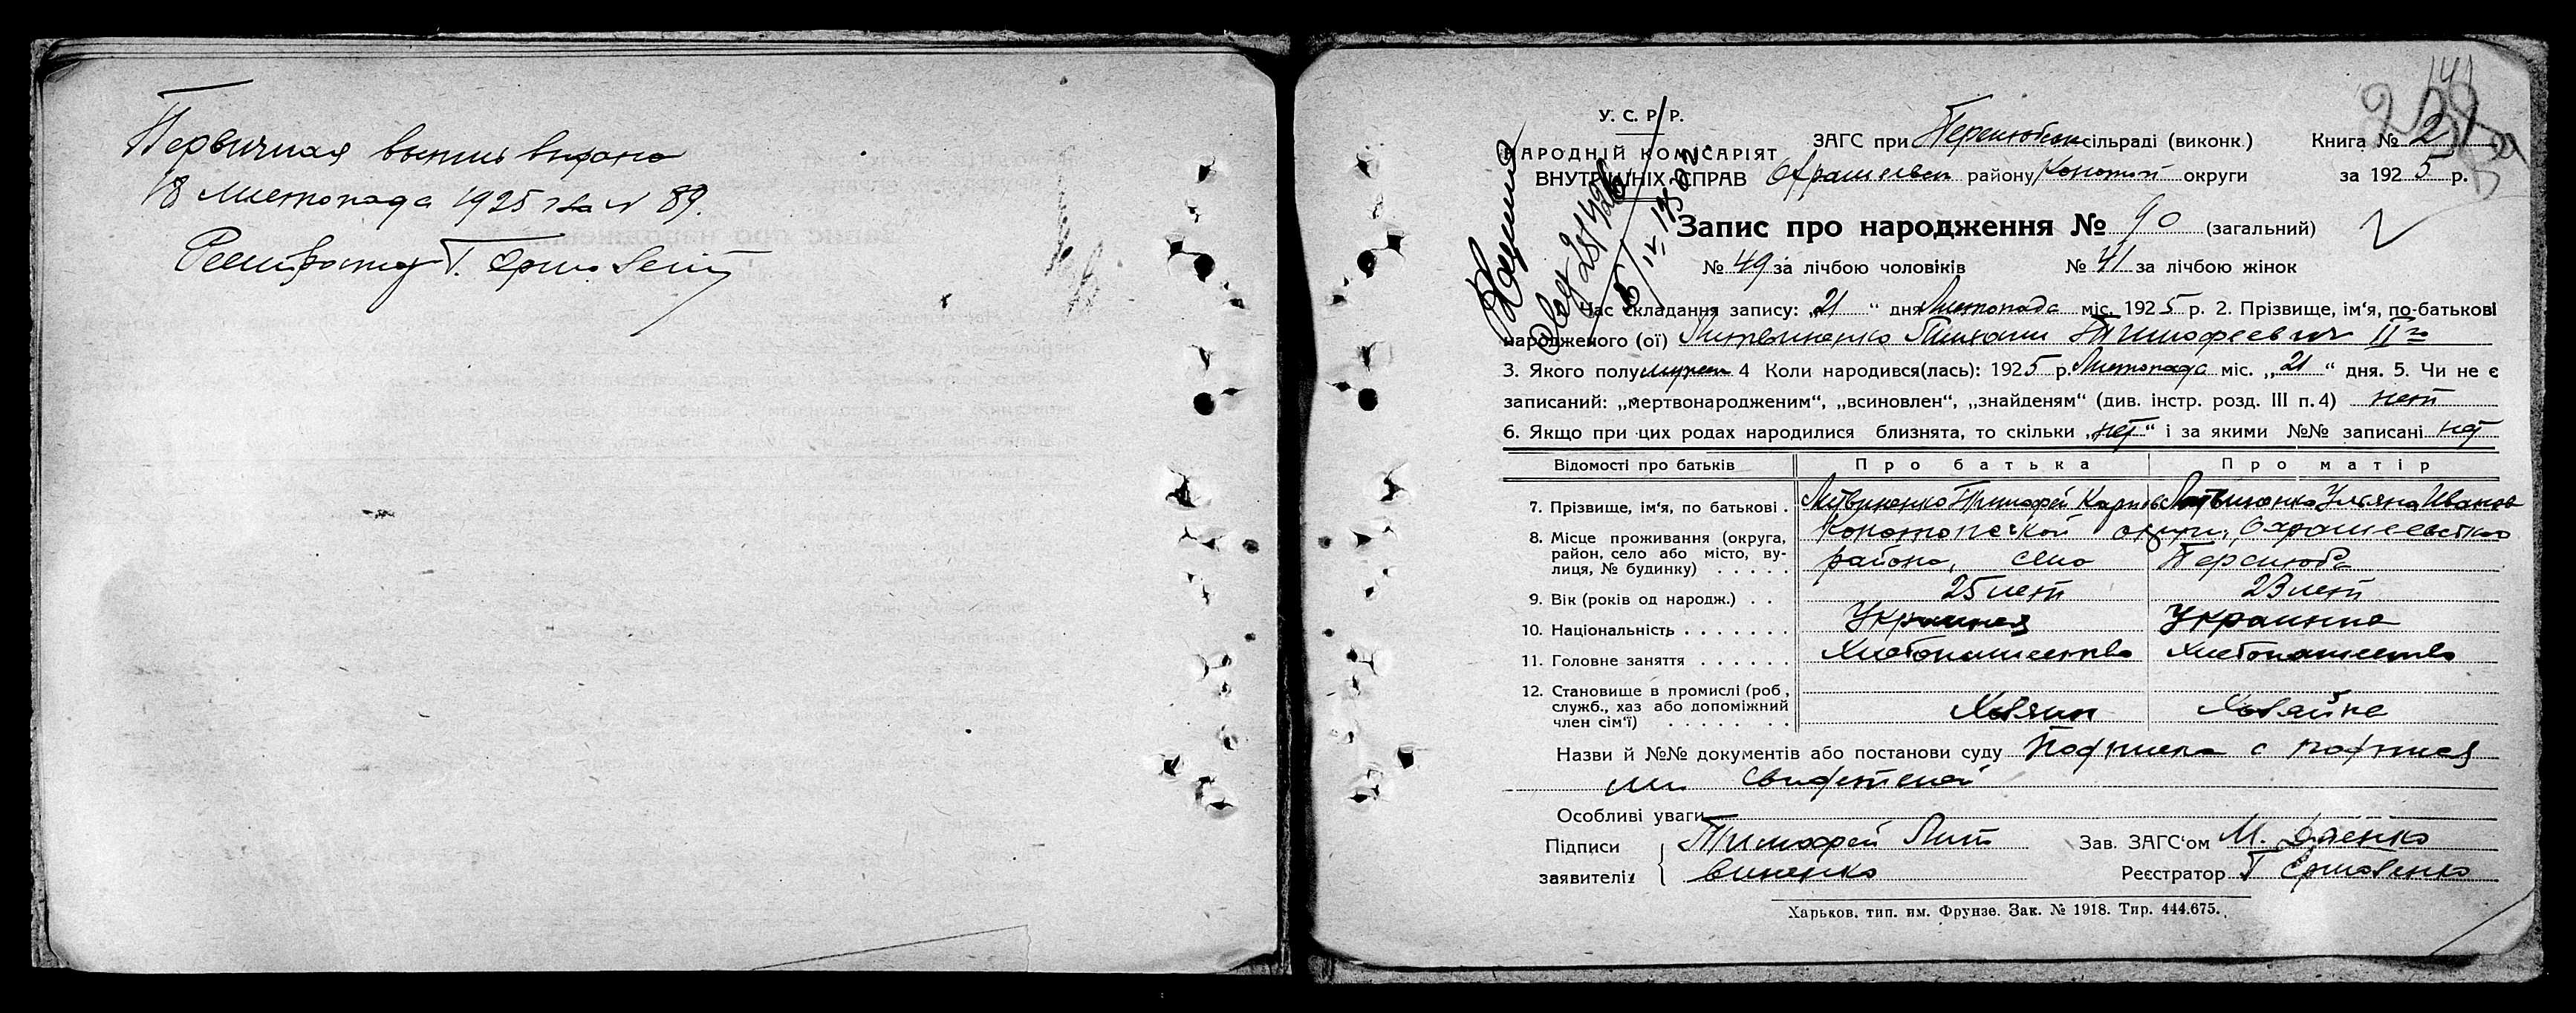 Первичная выпись выдана
18 Листопада 1925 г за № 89.
Регистратор Т. Ермоленко
У. С. Р. Р.
НАРОДНІЙ КОМІСАРІЯТ
ВНУТРІШНІХ СПРАВ
ЗАГС при сільраді (виконк.)
району Конотоп округи
Книга № 2
за 1925 р.
Запис про народження № 90 (загальний)
№ 49 за лічбою чоловіків № 41 за лічбою жінок
1. Час складання запису: „21“ дня Листопада міс. 1925 р. 2. Прізвище, ім‘я, по-батькові
народженого (ої) Литвиненко Тимофеевич II
3. Якого полу мужеск 4 Коли народився(лась): 1925 р. Листопада міс. „21“ дня. 5. Чи не є
записаний: „мертвонародженим“, „всиновлен“, „знайденям“ (див. інстр. розд. III п. 4) нет
6. Якщо при цих родах народилися близнята, то скільки „нет“ і за якими №№ записані нет
Відомості про батьків Про батька Про матір
7. Прізвище, ім‘я, по батькові . Литвиненко Тимофей Карпов Литвиненко Ульяна Иванов
8. Місце проживання (округа, район, село або місто, вулиця, № будинку) . . . . . Конотопской округи, Охрамеевского
района, село
9. Вік (років од народж.) . . 25 лет 23 лет
10. Національність . . . . . . . Украинец Украинка
11. Головне заняття . . . . . . Хлебопашество Хлебопашество
12. Становище в промислі (роб., служб., хаз або допоміжний член сім‘ї) . . . . . . . Хозяин Хозяйка
Назви й №№ документів або постанови суду Подписка с подпися
ми свидетелей
Особливі уваги
Підписи заявителів Тимофей Лит
виненко
Зав. ЗАГС‘ом М.
Реєстратор Т Ермоленко
Харьков. тип. им. Фрунзе. Зак. № 1918. Тир. 444.675.